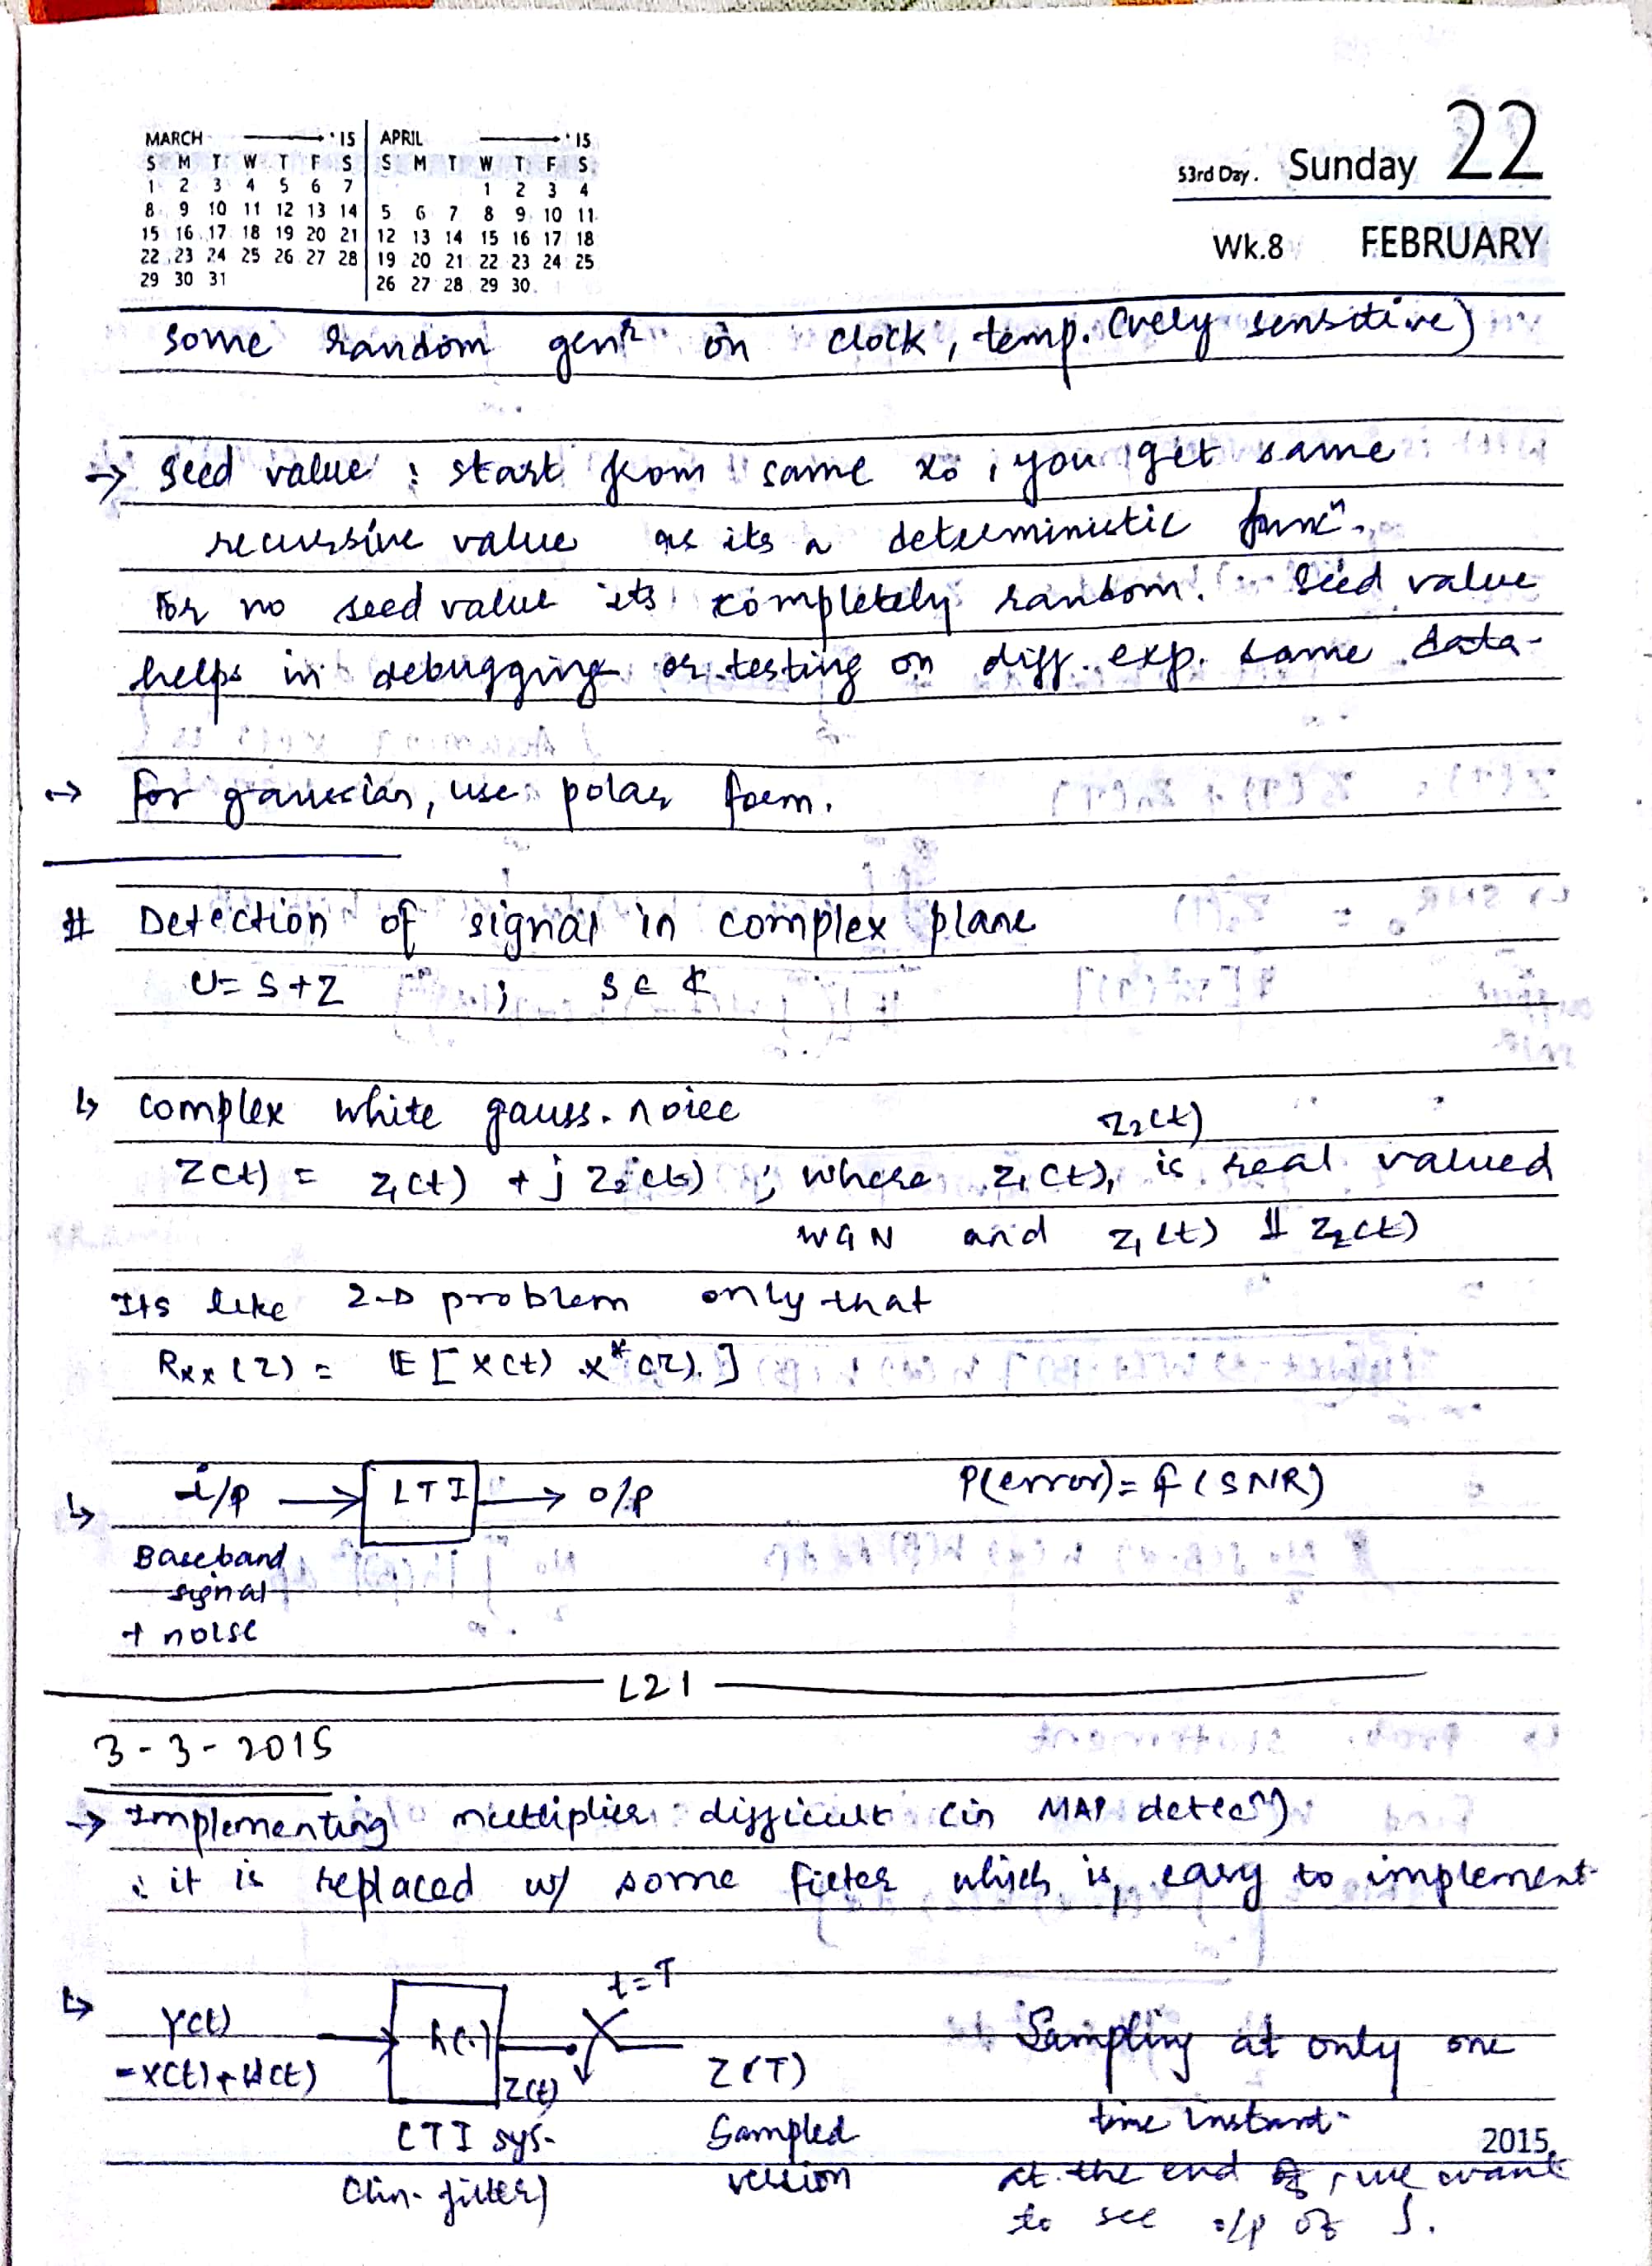 MARCH '15 APRIL '15
S M T W T F S S M T W T F S
1 2 3 4 5 6 7 1 2 3 4
8 9 10 11 12 13 14 5 6 7 8 9 10 11
15 16 17 18 19 20 21 12 13 14 15 16 17 18
22 23 24 25 26 27 28 19 20 21 22 23 24 25
29 30 31 26 27 28 29 30
53rd Day. Sunday 22
Wk.8 FEBRUARY
some random genʳ on clock, temp. (very sensitive)
→ seed value : start from same x₀, you get same
recurssive value as its a deterministic funcⁿ.
For no seed value its completely random. Seed value
helps in debugging or testing on diff. exp. same data.
→ for gaussian, use polar form.
# Detection of signal in complex plane
U = S + Z ; S ∈ ₵
↳ complex white gauss. noise
Z(t) = Z₁(t) + j Z₂(t) ; where Z₁(t), Z₂(t) is real valued
WGN and Z₁(t) ⫫ Z₂(t)
Its like 2-D problem only that
Rxx(z) = E[x(t) x*(z).]
↳ i/p → LTI → o/p P(error) = f(SNR)
Baseband
signal
+ noise
L21
3-3-2015
→ Implementing multiplier difficult (in MAP detecⁿ)
∴ it is replaced w/ some filter which is easy to implement
↳ Y(t) h(.) t=T Sampling at only one
= X(t) + W(t) Z(t) Z(T) time instant.
LTI sys. Sampled at the end, we want
(lin. filter) version to see o/p of ∫.
2015